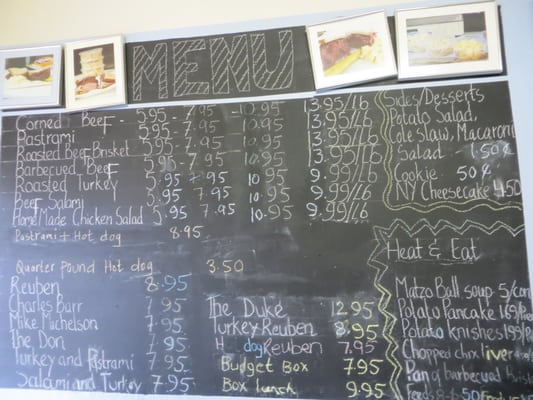 MENU
Corned Beef - 5.95 - 7.95 - 10.95 13.95/lb
Pastrami 5.95 - 7.95 10.95 13.95/lb
Roasted Beef Brisket 5.95 - 7.95 10.95 13.95/lb
Barbecued Beef 5.95 - 7.95 10.95 13.95/lb
Roasted Turkey 5.95 7.95 10.95 9.99/lb
Beef Salami 5.95 7.95 10.95 9.99/lb
Home Made Chicken Salad 5.95 7.95 10.95 9.99/lb
Pastrami + Hot dog 8.95
Quarter pound Hot dog 3.50
Reuben 8.95
Charles Barr 7.95
Mike Michelson 7.95
The Don 7.95
Turkey and Pastrami 7.95
Salami and Turkey 7.95
The Duke 12.95
Turkey Reuben 8.95
H dog Reuben 7.95
Budget Box 7.95
Box lunch 9.95
Sides/Desserts
Potato Salad,
Cole Slaw, Macaroni
Salad 1.50¢
Cookie 50¢
NY Cheesecake 4.50
Heat & Eat
Matzo Ball soup 5/con
Potato Pancake 1.69/
Potato knishes 1.99/
Chopped chix liver
Pan of barbecued